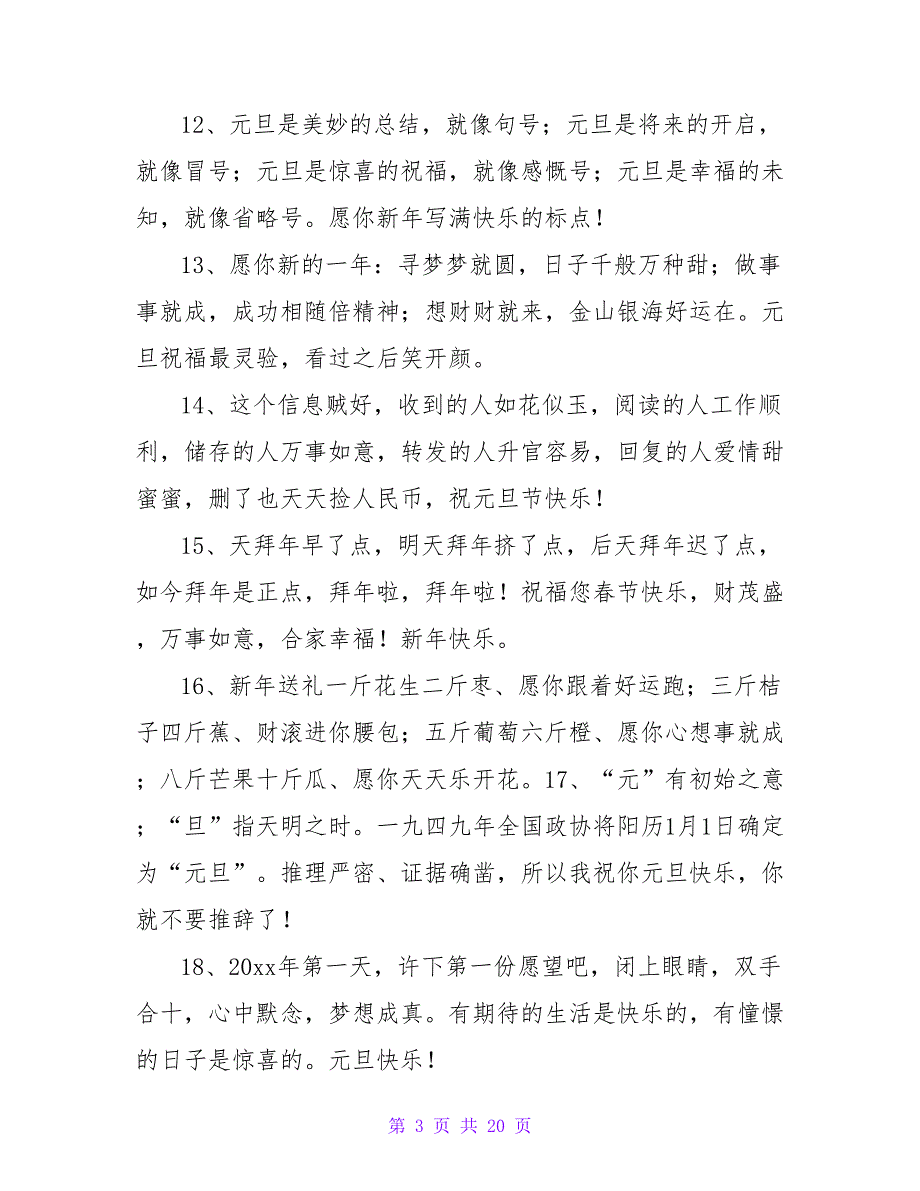 12、元旦是美妙的总结，就像句号；元旦是将来的开启，
就像冒号；元旦是惊喜的祝福，就像感慨号；元旦是幸福的未
知，就像省略号。愿你新年写满快乐的标点！
13、愿你新的一年：寻梦梦就圆，日子千般万种甜；做事
事就成，成功相随倍精神；想财财就来，金山银海好运在。元
旦祝福最灵验，看过之后笑开颜。
14、这个信息贼好，收到的人如花似玉，阅读的人工作顺
利，储存的人万事如意，转发的人升官容易，回复的人爱情甜
蜜蜜，删了也天天捡人民币，祝元旦节快乐！
15、天拜年早了点，明天拜年挤了点，后天拜年迟了点，
如今拜年是正点，拜年啦，拜年啦！祝福您春节快乐，财茂盛
，万事如意，合家幸福！新年快乐。
16、新年送礼一斤花生二斤枣、愿你跟着好运跑；三斤桔
子四斤蕉、财滚进你腰包；五斤葡萄六斤橙、愿你心想事就成
；八斤芒果十斤瓜、愿你天天乐开花。17、“元”有初始之意
；“旦”指天明之时。一九四九年全国政协将阳历1月1日确定
为“元旦”。推理严密、证据确凿，所以我祝你元旦快乐，你
就不要推辞了！
18、20xx年第一天，许下第一份愿望吧，闭上眼睛，双手
合十，心中默念，梦想成真。有期待的生活是快乐的，有憧憬
的日子是惊喜的。元旦快乐！
第 3 页 共 20 页